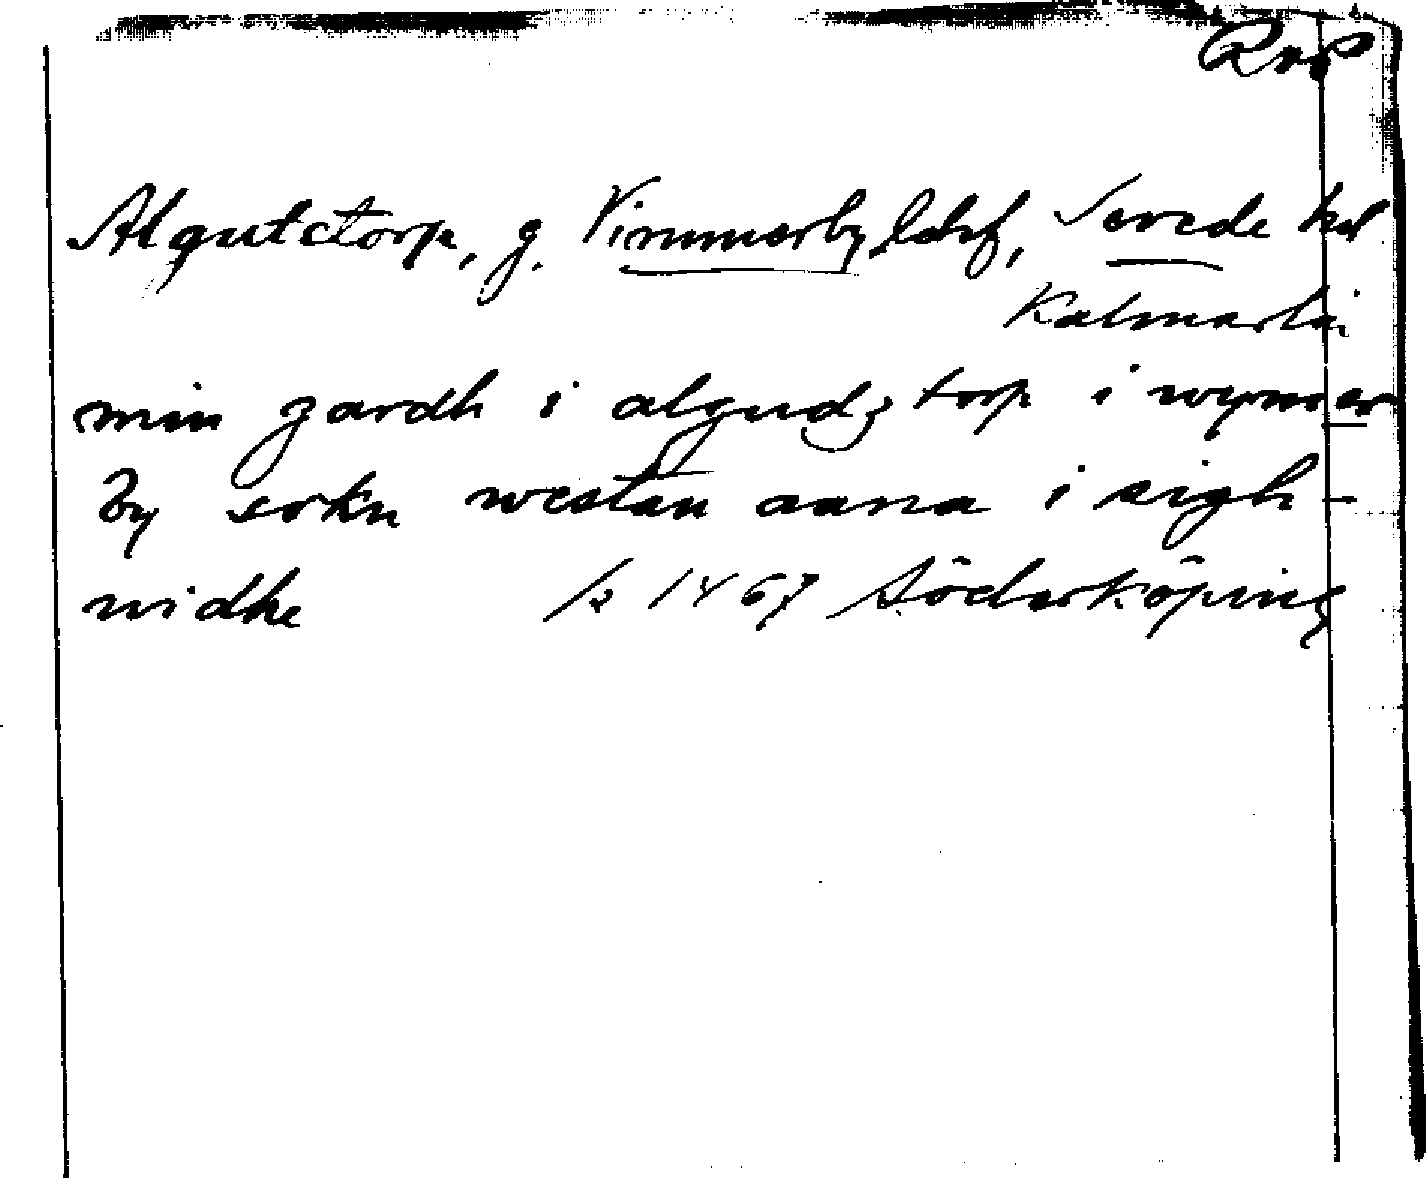 RAP
Algutstorp, g. Vimmerby ldsf, Sevede hd
Kalmar län
min gardh i algudz torp i wymer
by sokn westan aana i sigh-
widhe /2 1467 Söderköping